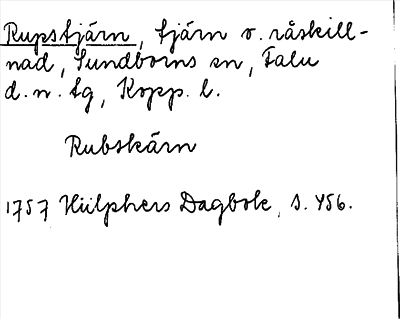 Rupstjärn, tjärn v. råskill-
nad, Sundborns sn, Falu
d.n. tg, Kopp. l.
Rubskärn
1757 Hülphers Dagbok, s. 456.